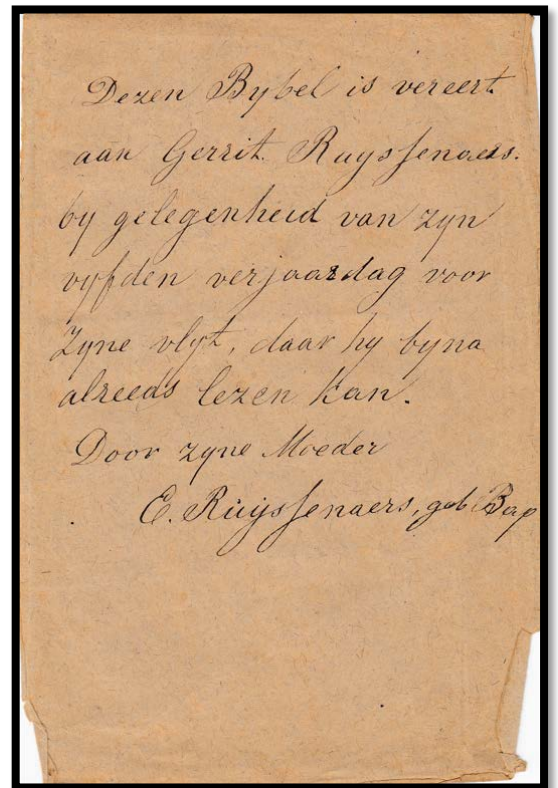 Dezen Bybel is vereert
aan Gerrit. Ruyssenaers.
by gelegenheid van zyn
vyfden verjaardag voor
Zyne vlyt, daar hy byna
alreeds lezen kan.
Door zyne Moeder
E. Ruijssenaers, geb Bap